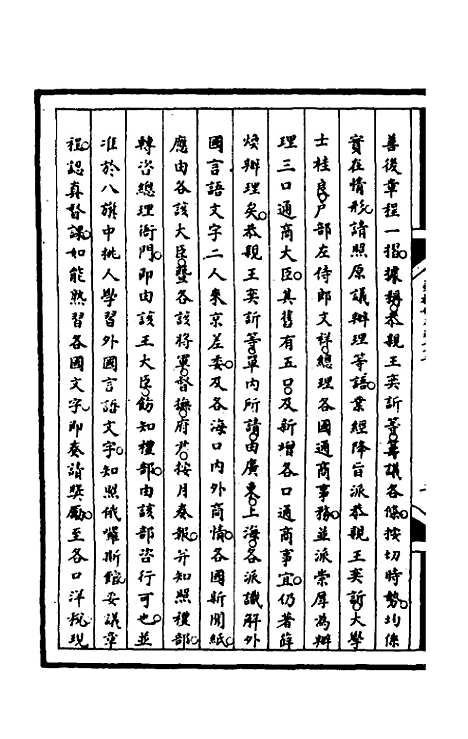 善後章程一摺。據稱恭親王奕訢等籌議各條。按切時勢。均係
實在情形。請照原議辦理等語。業經降旨派恭親王奕訢。大學
士桂良。戶部左侍郎文祥。總理各國通商事務。並派崇厚為辦
理三口通商大臣。其舊有五口。及新增各口通商事宜。仍著薛
煥辦理矣。恭親王奕訢等單內所請。由廣東。上海。各派識解外
國言語文字二人來京差委。及各海口內外商情。各國新聞紙。
應由各該大臣。暨各該將軍。督撫。府尹。按月奏報。並知照禮部。
轉咨總理衙門。即由該王大臣。飭知禮部。由該部咨行可也。並
准於八旗中挑人學習外國言語文字。知照俄羅斯館。妥議章
程。認真督課。如能熟習各國文字。即奏請獎勵。至各口洋稅。現